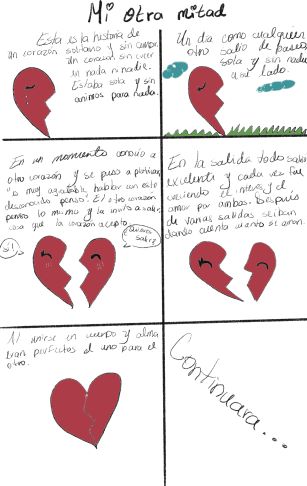 Mi otra mitad
Esta es la historia de
un corazón solitario y sin amor.
Un corazón sin creer
en nada ni nadie.
Estaba sola y sin
animos para nada.
Un día como cualquier
otro salio de paseo,
sola y sin nadie
a su lado.
En un momento conocio a
otro corazón y se puso a platicar,
"es muy agradable hablar con este
desconocido penso". El otro corazón
penso lo mismo y la invito a salir,
cosa que la corazón acepto.
Si!
Quieres
salir?
En la salida todo salio
excelente y cada vez fue
creciendo el interes y el
amor por ambos. Después
de varias salidas se iban
dando cuenta cuanto se aman.
Al unirse en cuerpo y alma
eran perfectos el uno para el
otro.
Continuara...